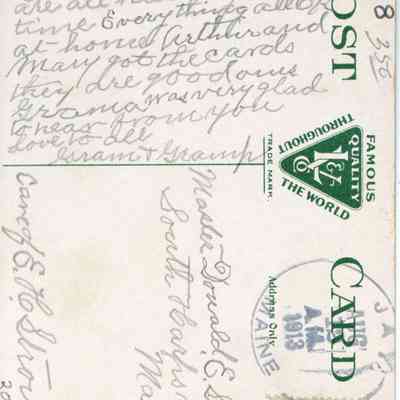 are all
time Everything all OK
at home Arthur and
Mary got the cards
they are good ones
Grama was very glad
to hear from you
love to all
Gram & Gramp
POST CARD
8
350
FAMOUS
QUALITY
THROUGHOUT
THE WORLD
TRADE MARK.
Address Only.
JA
AUG
A.M.
1913
MAINE
Master Donald E. S
South Harps
Ma
Care of E. H. Strou
20